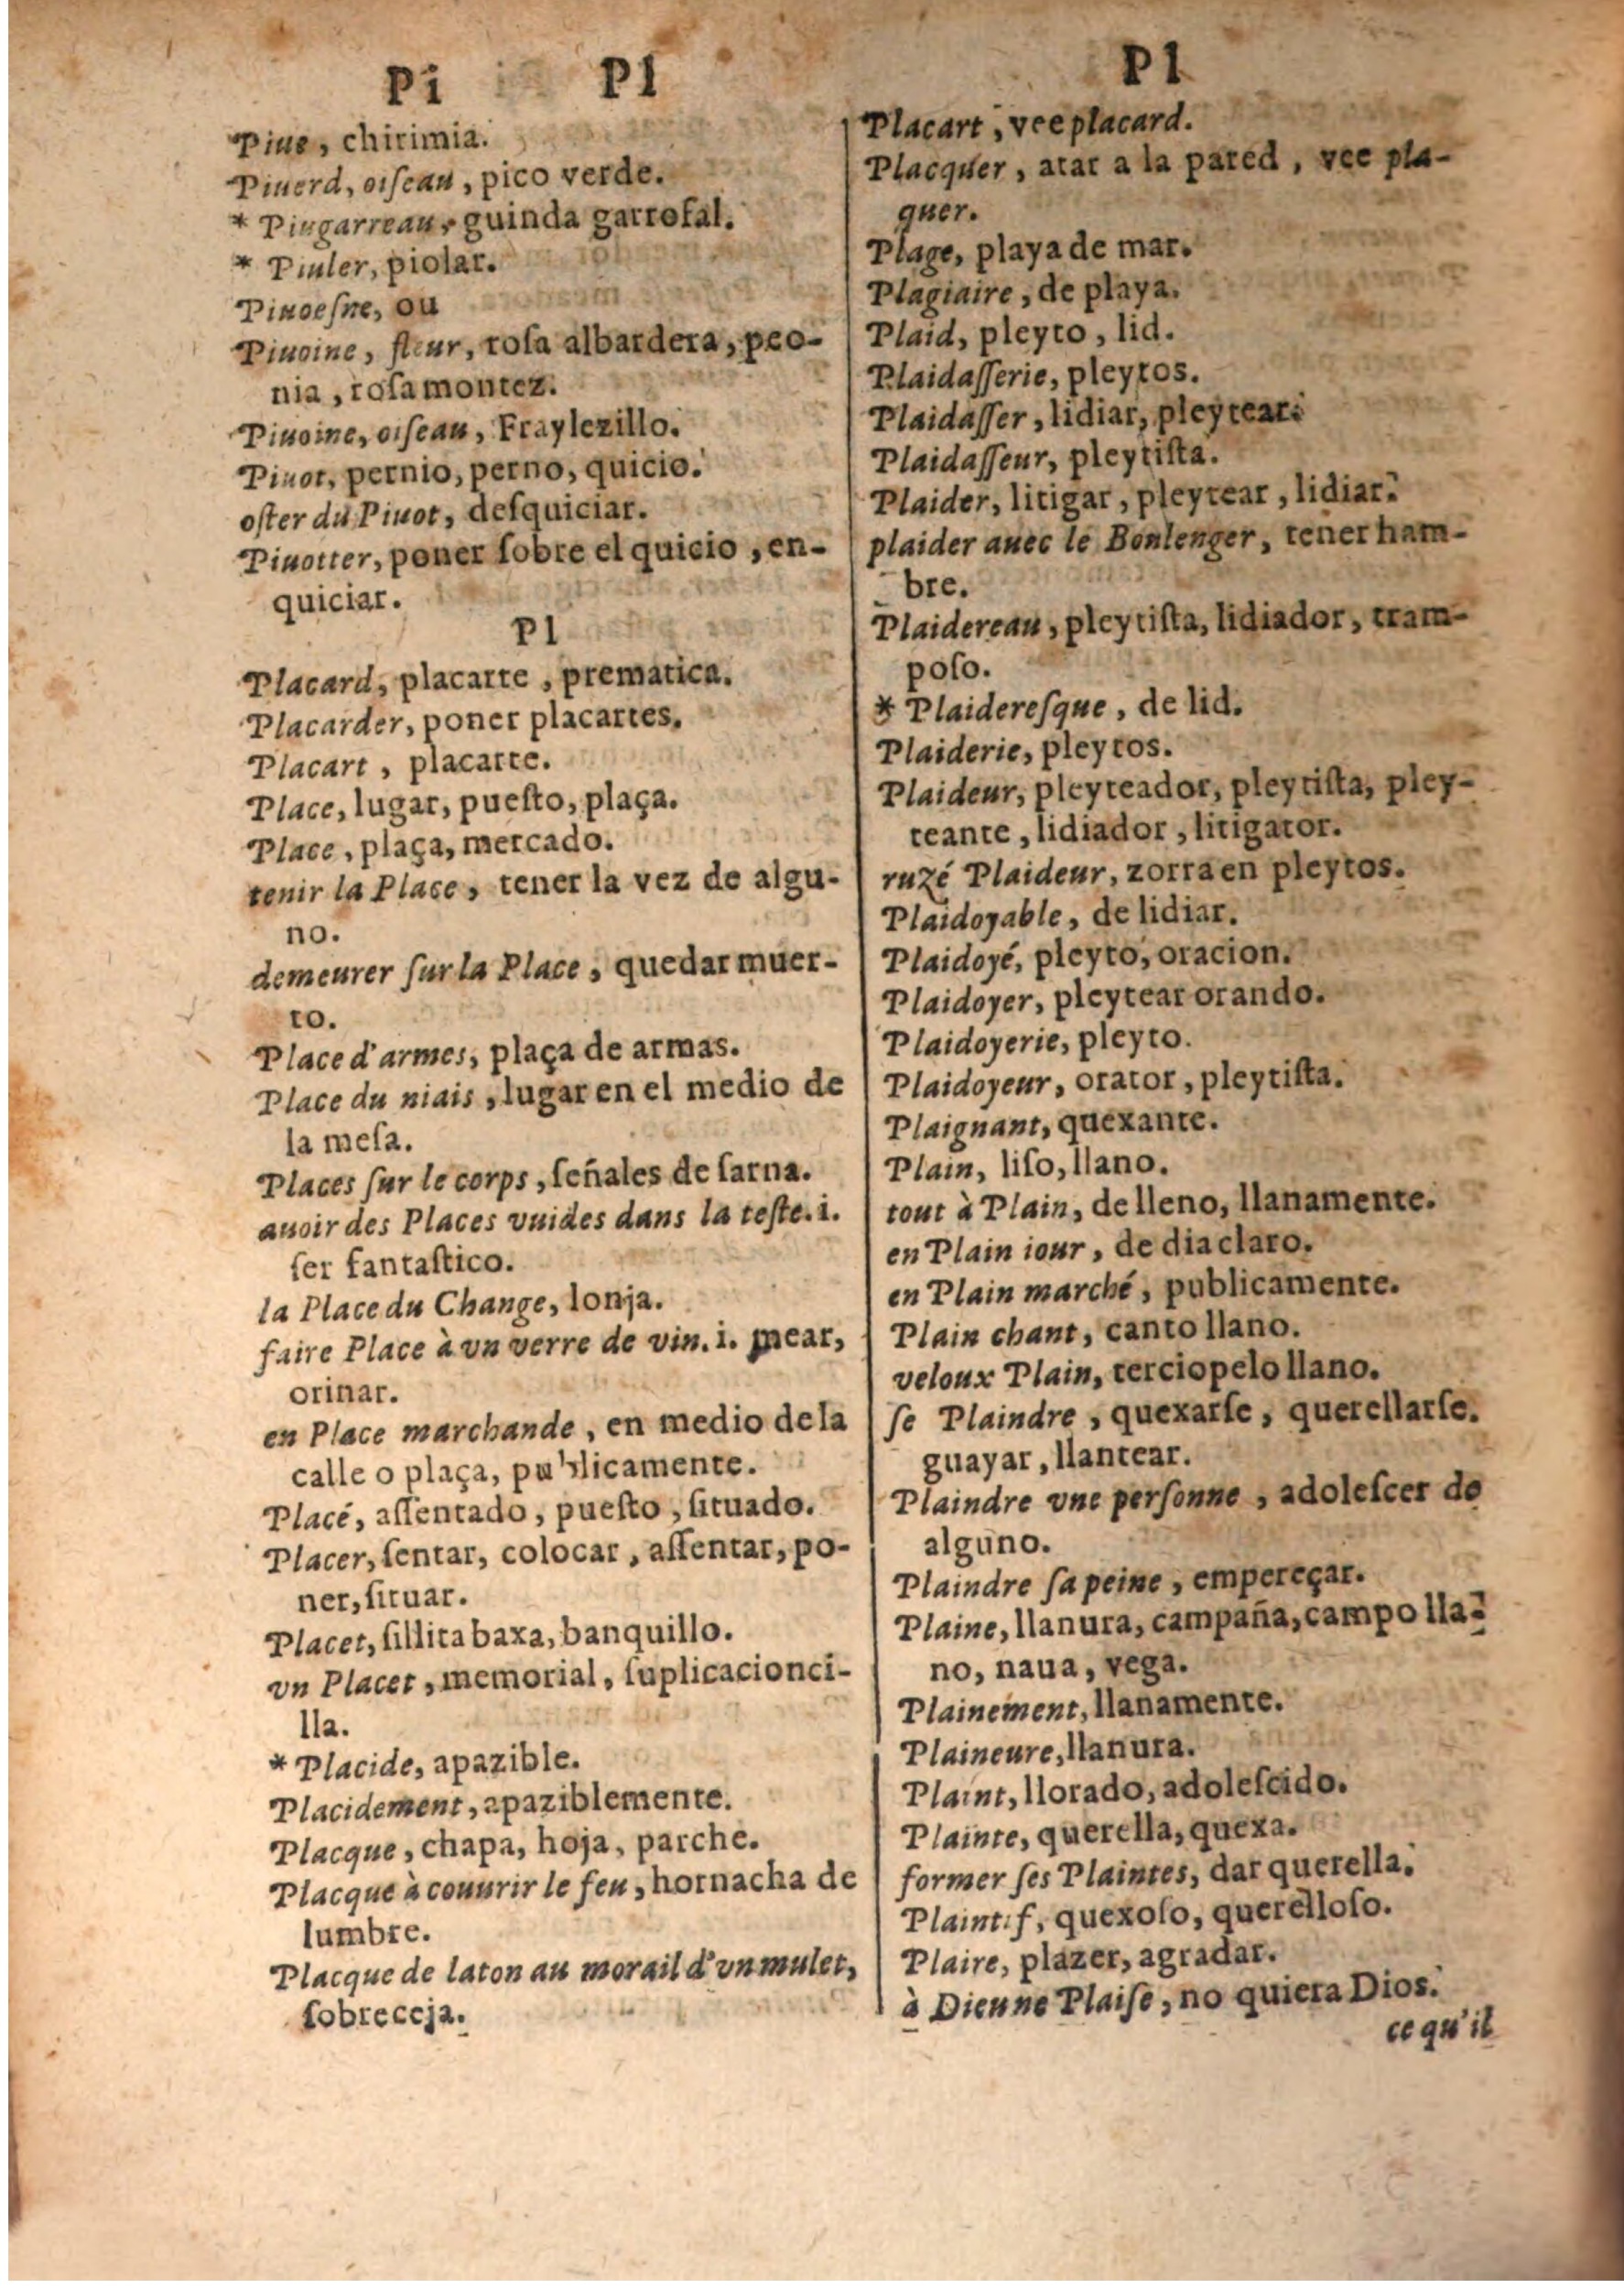 Pi Pl
Piue, chirimia.
Piuerd, oiſeau, pico verde.
* Piugarreau, guinda garrofal.
* Piuler, piolar.
Piuoeſne, ou
Piuoine, fleur, roſa albardera, peo-
nia, roſa montez.
Piuoine, oiſeau, Fraylezillo.
Piuot, pernio, perno, quicio.
oſter du Piuot, deſquiciar.
Piuotter, poner ſobre el quicio, en-
quiciar.
Pl
Placard, placarte, prematica.
Placarder, poner placartes.
Placart, placarte.
Place, lugar, pueſto, plaça.
Place, plaça, mercado.
tenir la Place, tener la vez de algu-
no.
demeurer ſur la Place, quedar muer-
to.
Place d'armes, plaça de armas.
Place du niais, lugar en el medio de
la meſa.
Places ſur le corps, ſeñales de ſarna.
auoir des Places vuides dans la teſte. i.
ſer fantaſtico.
la Place du Change, lonja.
faire Place à vn verre de vin. i. mear,
orinar.
en Place marchande, en medio de la
calle o plaça, publicamente.
Placé, aſſentado, pueſto, ſituado.
Placer, ſentar, colocar, aſſentar, po-
ner, ſituar.
Placet, ſillita baxa, banquillo.
vn Placet, memorial, ſuplicacionci-
lla.
* Placide, apazible.
Placidement, apaziblemente.
Placque, chapa, hoja, parche.
Placque à couurir le feu, hornacha de
lumbre.
Placque de laton au morail d'vn mulet,
ſobreceja.
Pl
Placart, vee placard.
Placquer, atar a la pared, vee pla-
quer.
Plage, playa de mar.
Plagiaire, de playa.
Plaid, pleyto, lid.
Plaidaſſerie, pleytos.
Plaidaſſer, lidiar, pleytear.
Plaidaſſeur, pleytiſta.
Plaider, litigar, pleytear, lidiar.
plaider auec le Boulenger, tener ham-
bre.
Plaidereau, pleytiſta, lidiador, tram-
poſo.
* Plaidereſque, de lid.
Plaiderie, pleytos.
Plaideur, pleyteador, pleytiſta, pley-
teante, lidiador, litigator.
ruzé Plaideur, zorra en pleytos.
Plaidoyable, de lidiar.
Plaidoyé, pleyto, oracion.
Plaidoyer, pleytear orando.
Plaidoyerie, pleyto.
Plaidoyeur, orator, pleytiſta.
Plaignant, quexante.
Plain, liſo, llano.
tout à Plain, de lleno, llanamente.
en Plain iour, de dia claro.
en Plain marché, publicamente.
Plain chant, canto llano.
veloux Plain, terciopelo llano.
ſe Plaindre, quexarſe, querellarſe.
guayar, llantear.
Plaindre vne perſonne, adoleſcer de
alguno.
Plaindre ſa peine, empereçar.
Plaine, llanura, campaña, campo lla-
no, naua, vega.
Plainement, llanamente.
Plaineure, llanura.
Plaint, llorado, adoleſcido.
Plainte, querella, quexa.
former ſes Plaintes, dar querella.
Plaintif, quexoſo, querelloſo.
Plaire, plazer, agradar.
à Dieu ne Plaiſe, no quiera Dios.
ce qu'il